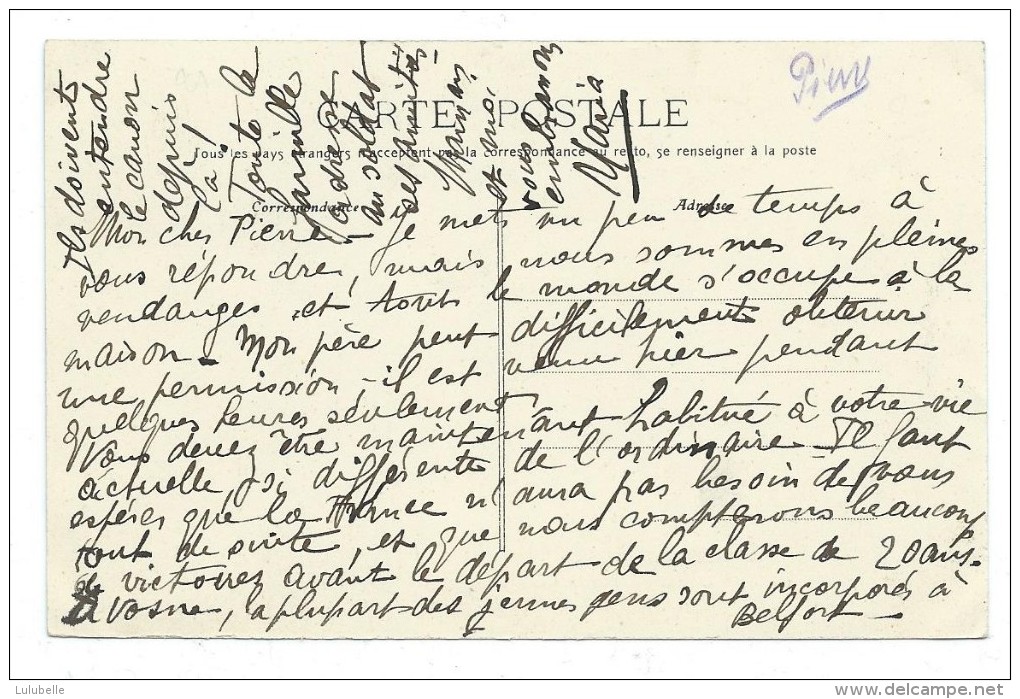 Pierre
CARTE POSTALE
Tous les pays étrangers n'acceptent pas la correspondance au recto, se renseigner à la poste
Correspondance
Adresse
Mon cher Pierre - Je mets un peu de temps à
vous répondre, mais nous sommes en pleines
vendanges et tout le monde s'occupe à la
maison - Mon père peut difficilement obtenir
une permission - il est venu hier pendant
quelques heures seulement
Vous devez être maintenant habitué à votre vie
actuelle, si différente de l'ordinaire - Il faut
espérer que la France n'aura pas besoin de vous
tout de suite, et que nous compterons beaucoup
de victoires avant le départ de la classe de 20 ans -
A Vosne, la plupart des jeunes gens sont incorporés à
Belfort
Ils doivent
entendre
le canon
depuis
là!
Toute la
famille
adresse
au soldat
ses amitiés
et moi
vous
embrassons
Maria
Lulubelle
delcampe.net